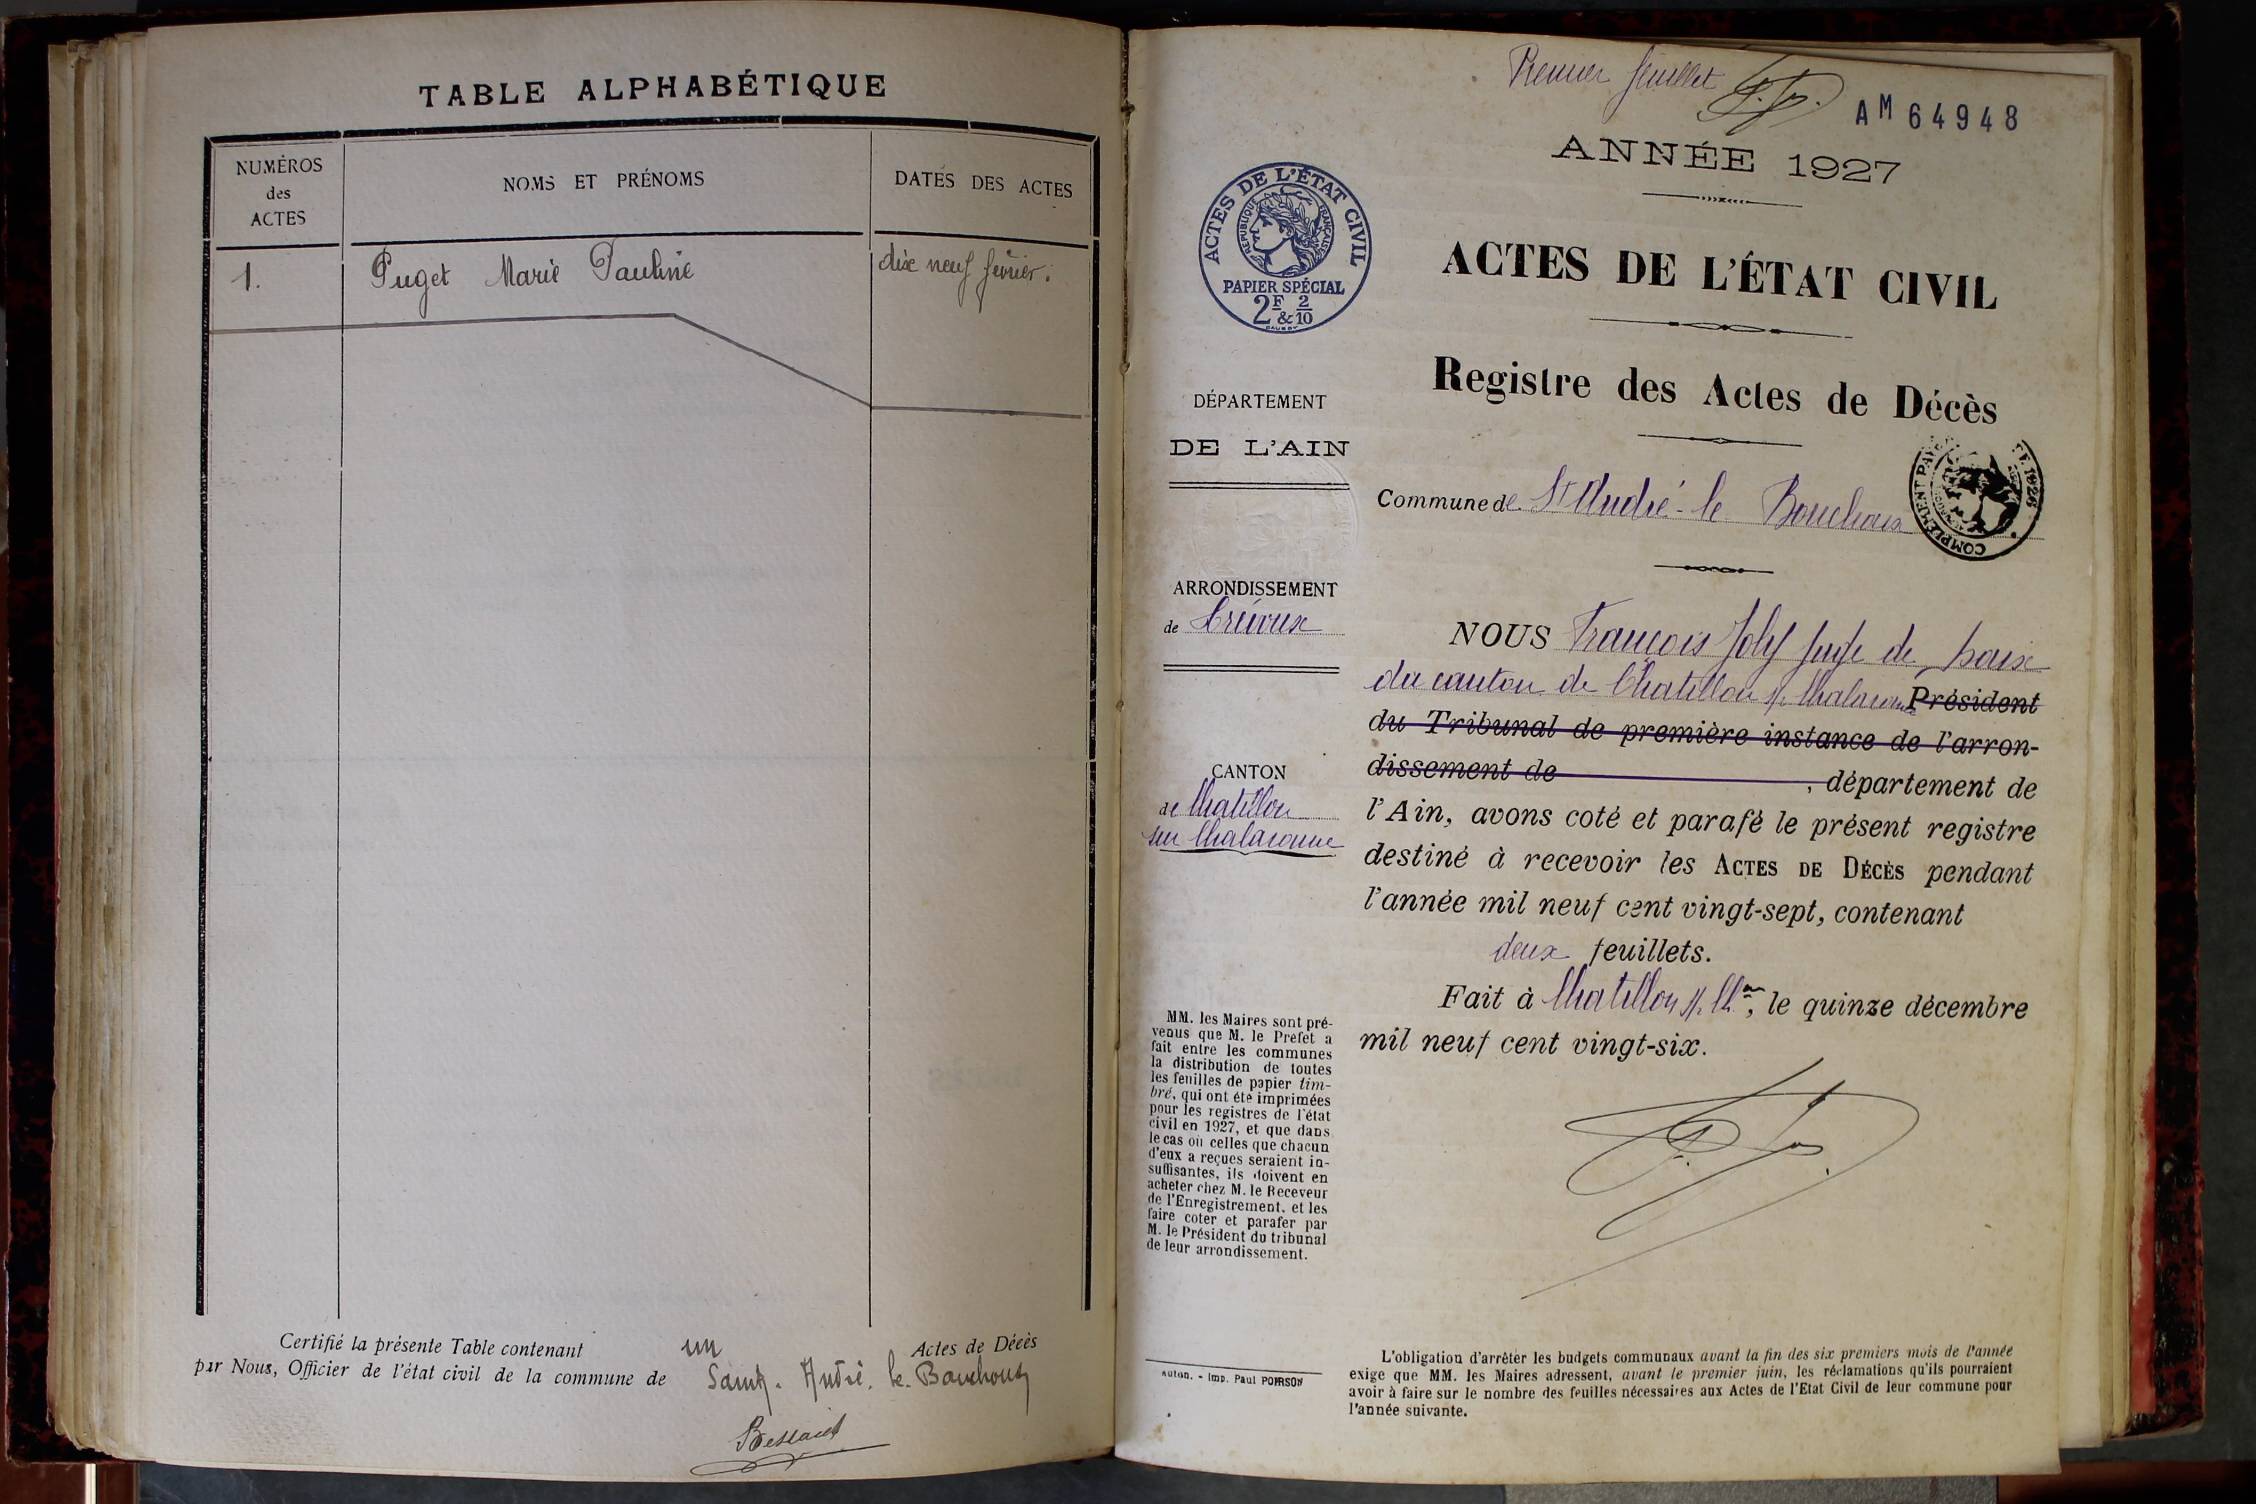 TABLE ALPHABÉTIQUE
NUMÉROS
des
ACTES
NOMS ET PRÉNOMS
DATES DES ACTES
1.
Puget Marie Pauline
dix neuf février.
Certifié la présente Table contenant un Actes de Décès
par Nous, Officier de l'état civil de la commune de Saint-André-le-Bouchoux
Premier feuillet
AM 64948
ANNÉE 1927
ACTES DE L'ÉTAT CIVIL
RÉPUBLIQUE FRANÇAISE
PAPIER SPÉCIAL
2F & 2/10
ACTES DE L'ÉTAT CIVIL
Registre des Actes de Décès
DÉPARTEMENT
DE L'AIN
Commune de St André-le Bouchoux
COMPLÉMENT PAYÉ
1926
ARRONDISSEMENT
de Trévoux
CANTON
de Chatillon
sur Chalaronne
NOUS François Joly Juge de paix
du canton de Chatillon s/ Chalaronne Président
du Tribunal de première instance de l'arron-
dissement de , département de
l'Ain, avons coté et parafé le présent registre
destiné à recevoir les ACTES DE DÉCÈS pendant
l'année mil neuf cent vingt-sept, contenant
deux feuillets.
Fait à Chatillon s/. Ch.ne, le quinze décembre
mil neuf cent vingt-six.
MM. les Maires sont pré-
venus que M. le Préfet a
fait entre les communes
la distribution de toutes
les feuilles de papier tim-
bré, qui ont été imprimées
pour les registres de l'état
civil en 1927, et que dans
le cas où celles que chacun
d'eux a reçues seraient in-
suffisantes, ils doivent en
acheter chez M. le Receveur
de l'Enregistrement, et les
faire coter et parafer par
M. le Président du tribunal
de leur arrondissement.
Imp. Paul POIRSON
L'obligation d'arrêter les budgets communaux avant la fin des six premiers mois de l'année
exige que MM. les Maires adressent, avant le premier juin, les réclamations qu'ils pourraient
avoir à faire sur le nombre des feuilles nécessaires aux Actes de l'Etat Civil de leur commune pour
l'année suivante.